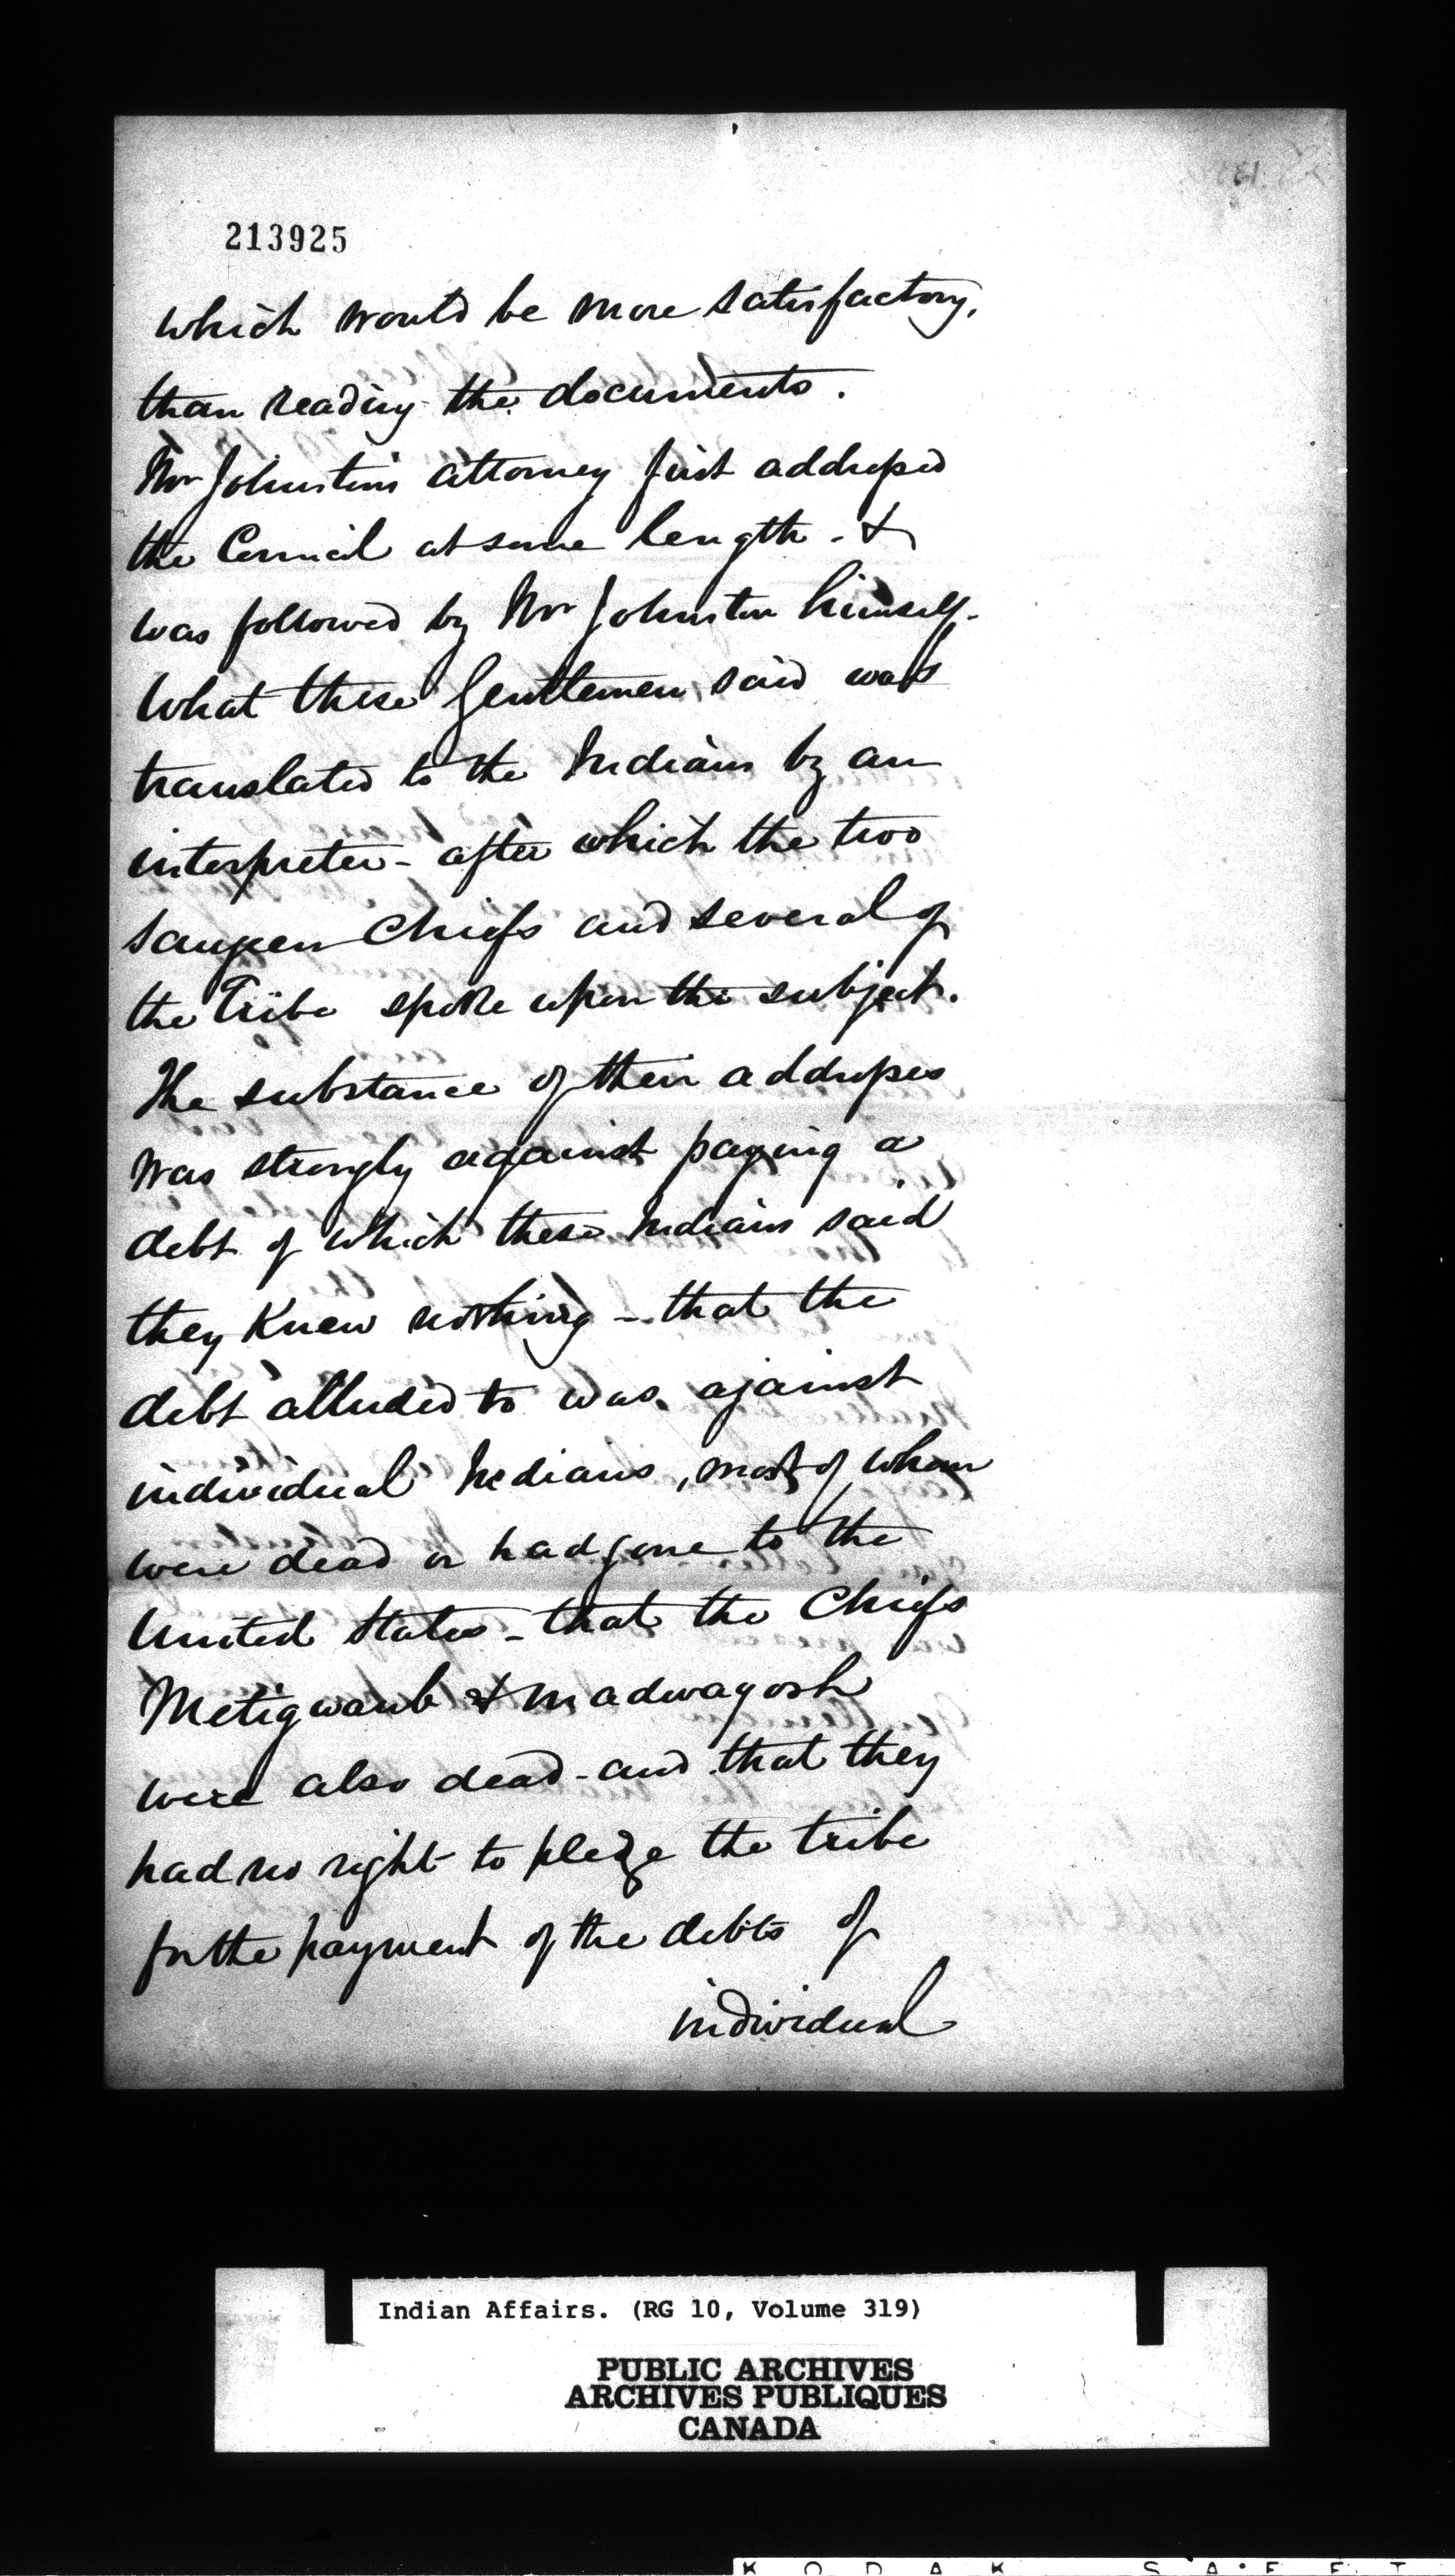 213925
which would be more satisfactory,
than reading the documents.
Mr Johnston's attorney first addressed
the Council at some length - &
was followed by Mr Johnston himself.
What these Gentlemen said was
translated to the Indians by an
interpreter - after which the two
Saugeen Chiefs and several of
the Tribe spoke upon the subject.
The substance of their addresses
was strongly against paying a
debt of which these Indians said
they knew nothing - that the
debt alluded to was against
individual Indians, most of whom
were dead or had gone to the
United States - that the Chiefs
Metigwaub & Madwayosh
were also dead - and that they
had no right to pledge the tribe
for the payment of the debts of
individual
Indian Affairs. (RG 10, Volume 319)
PUBLIC ARCHIVES
ARCHIVES PUBLIQUES
CANADA
K O D A K S A F E T